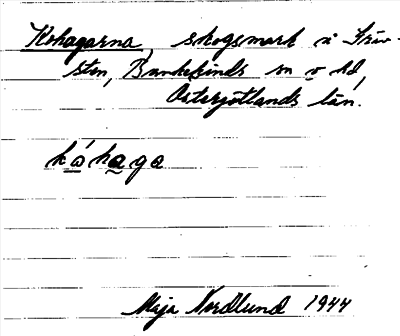 Kohagarna, skogsmark i Träv-
sten, Bankekinds sn o hd,
Östergötlands län.
kóhaga
Maja Nordlund 1944